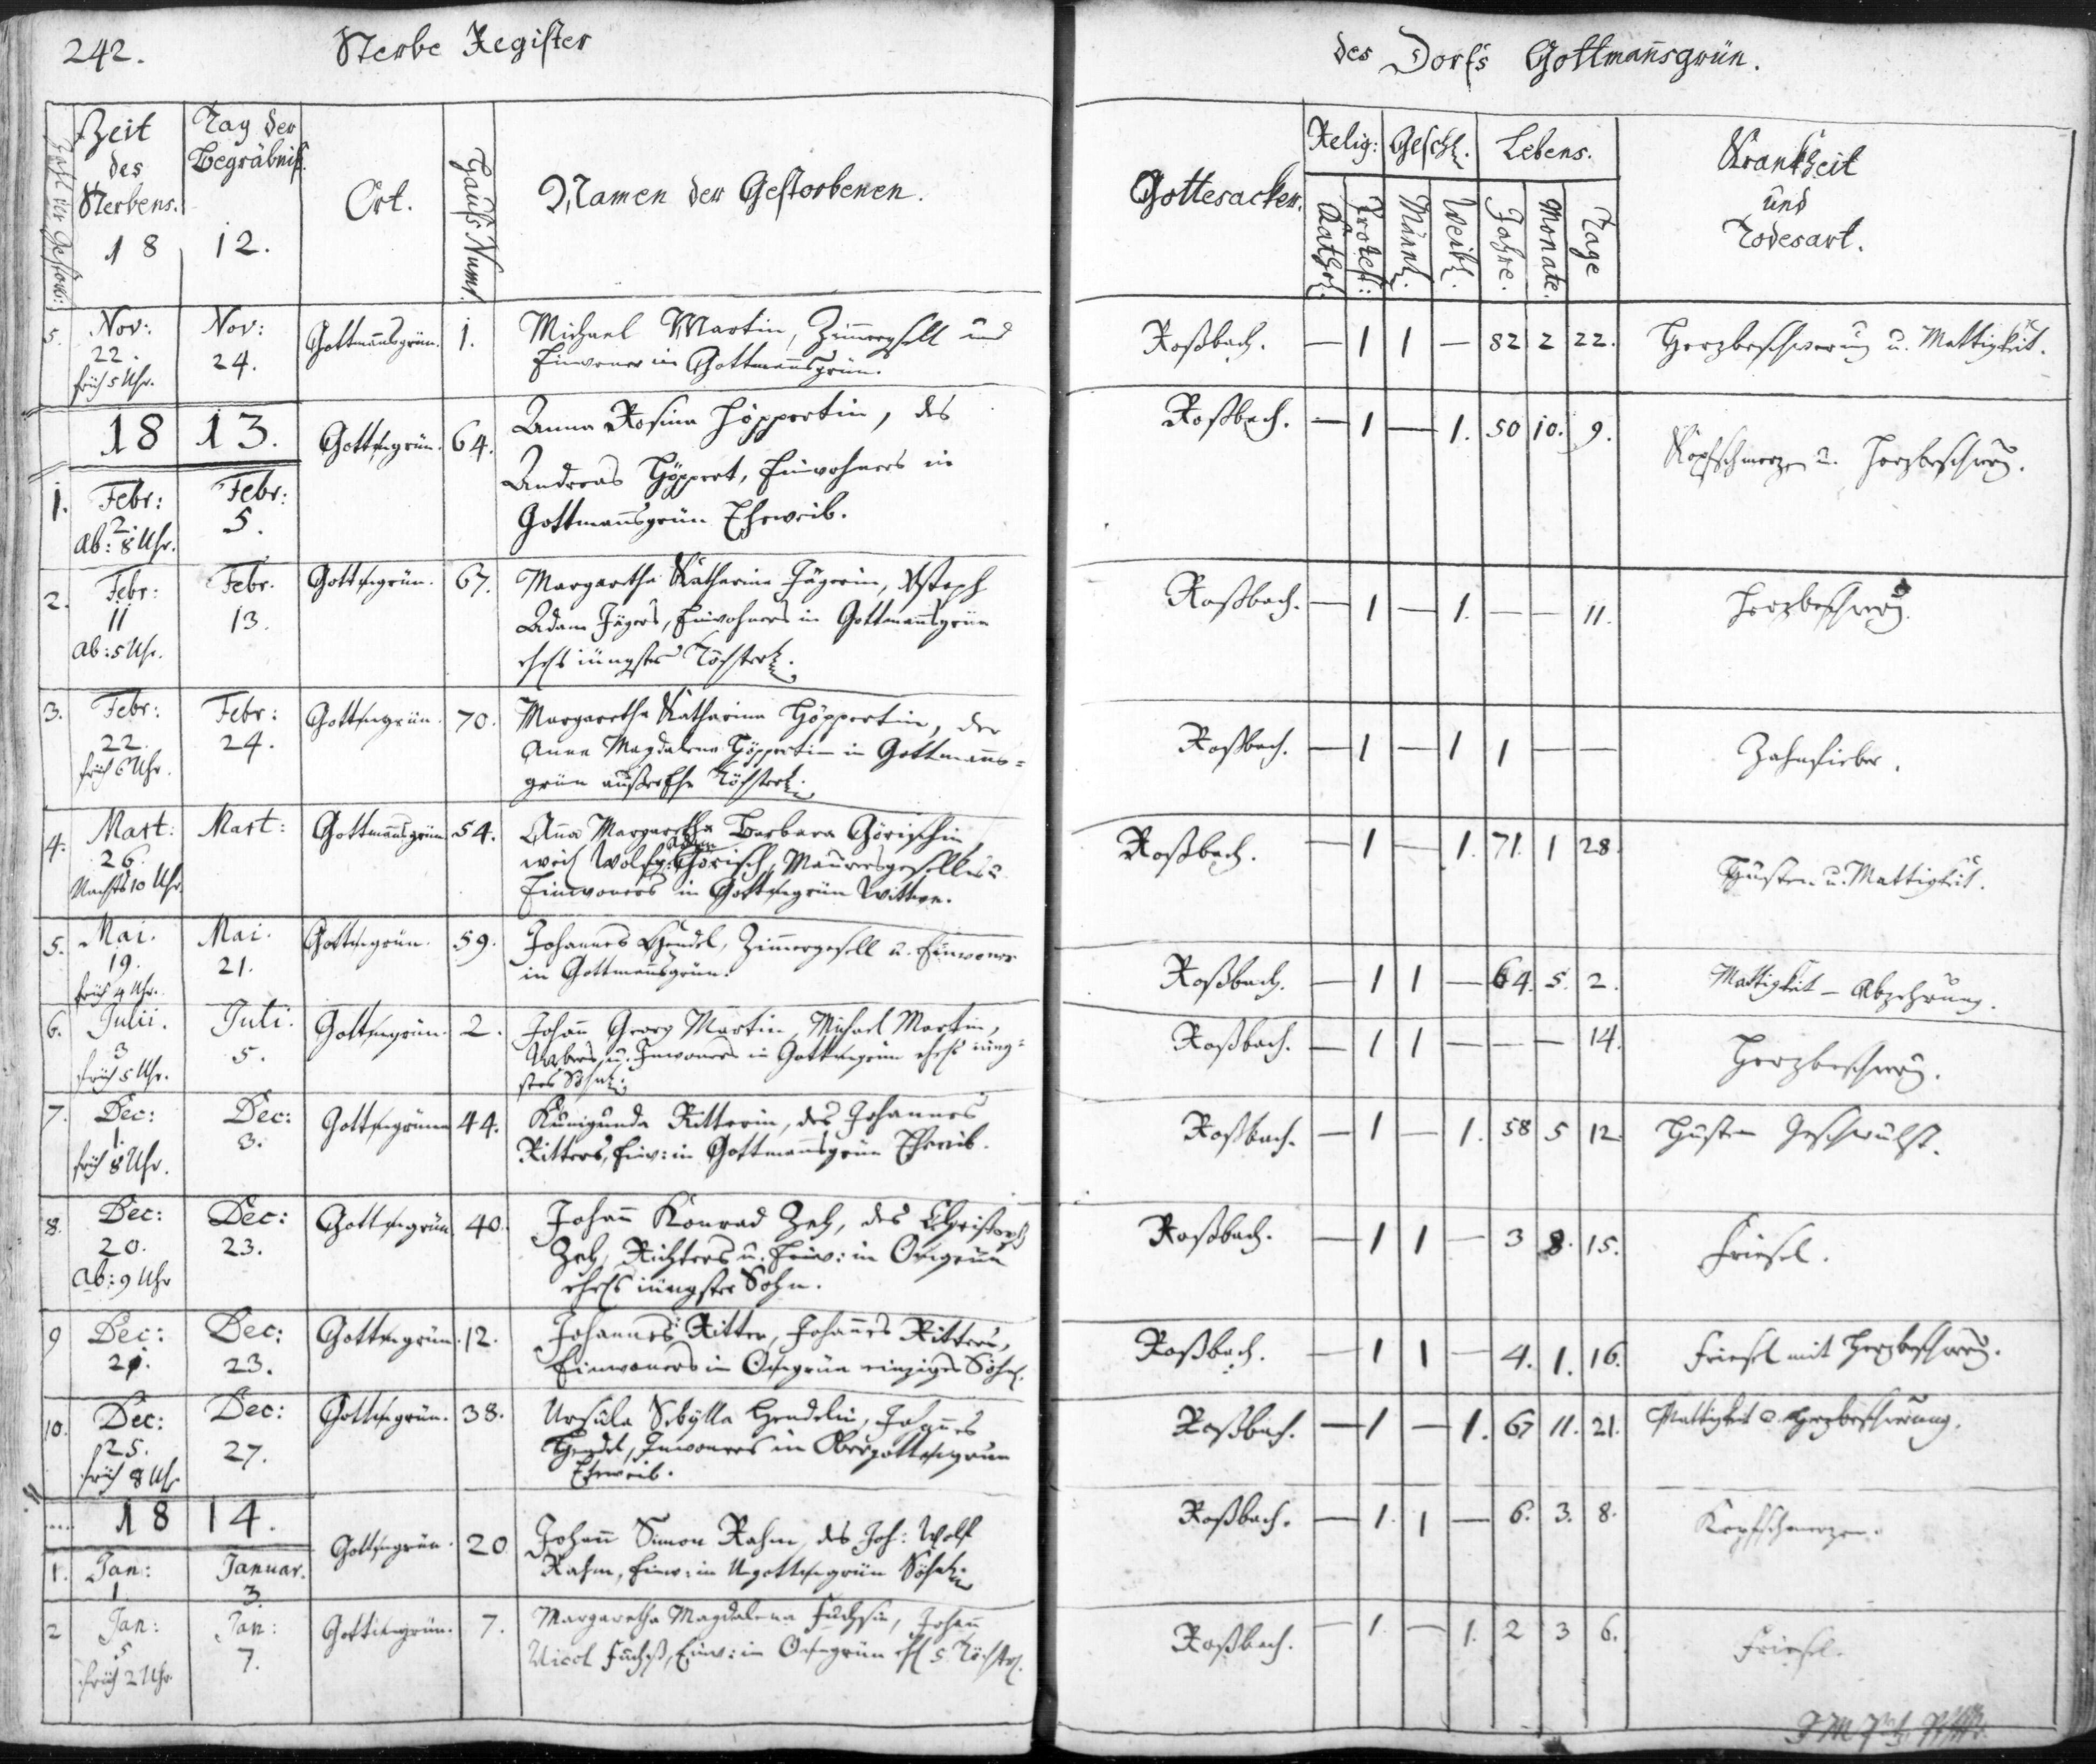 242. Sterbe Register des Dorfs Gottman̄sgrün.
Zahl der Gestorb:
Zeit des Sterbens.
Tag der Begräbniß.
18 12.
Ort.
Hauß Num̄r.
Namen der Gestorbenen.
Gottesacker.
Relig: Kathol. Protest:
Geschl. Mänl. Weibl.
Lebens. Jahre. Monate. Tage
Krankheit und Todesart.
5. Nov: 22. früh 5 Uhr. Nov: 24. Gottman̄sgrün. 1. Michael Martin, Zim̄ergsell und
Einwoner in Gottman̄sgrün. Roßbach. — 1 1 — 82 2 22. Herzbeschwerung u. Mattigkeit.
18 13.
1. Febr: 2. Ab: 8 Uhr. Febr: 5. Gottsgrün. 64. Anna Rosina Höppertin, des
Andreas Höppert, Einwohners in
Gottman̄sgrün Eheweib. Roßbach. — 1 — 1. 50 10. 9. Kopfschmerzen u. Herzbeschwrg.
2. Febr: 11 Ab: 5 Uhr. Febr. 13. Gottsgrün. 67. Margaretha Katharina Jägerin,
Adam Jägers, Einwohners in Gottman̄sgrün
ehels jüngstes Töchterl. Roßbach. — 1 — 1. — — 11. Herzbeschwrg.
3. Febr: 22. früh 6 Uhr. Febr: 24. Gottsgrün. 70. Margaretha Katharina Höppertin, der
Anna Magdalena Höppertin in Gottman̄s=
grün außerehe Töchterl. Roßbach. — 1 — 1 1 — — Zahnfieber.
4. Mart: 26. Nachts 10 Uhr. Mart: Gottman̄sgrün 54. An̄a Margaretha Barbara Görischin
weil Wolfg: Adam Görisch, Maurersgesellens u
Einwoners in Gottsgrün Wittwe. Roßbach. — 1 — 1. 71. 1 28. Husten u. Mattigkeit.
5. Mai. 19. früh 4 Uhr. Mai. 21. Gottsgrün. 59. Johannes Hendel, Zim̄ergesell u. Einwoner
in Gottman̄sgrün. Roßbach. — 1 1 — 64. 5. 2. Mattigkeit - Abzehrung.
6. Julii. 3 früh 5 Uhr. Juli. 5. Gottsgrün. 2. Johan̄ Georg Martin, Michael Martin,
Webers u. Inwoners in Gottsgrün ehels jüng=
stes Söhnl. Roßbach. — 1 1 — — — 14. Herzbeschwrg.
7. Dec: 1. früh 8 Uhr. Dec: 3. Gottsgrün 44. Kunigunda Ritterin, des Johannes
Ritters, Einw: in Gottman̄sgrün Eheweib. Roßbach. — 1 — 1. 58 5 12. Husten Geschwulst.
8. Dec: 20. Ab: 9 Uhr Dec: 23. Gottsgrün. 40. Johan̄ Konrad Zeh, des Christoph
Zeh, Richters u. Einw: in Osgrün
ehels jüngster Sohn. Roßbach. — 1 1 — 3 8. 15. Friesel.
9 Dec: 21. Dec: 23. Gottsgrün. 12. Johannes Ritter, Johan̄es Ritters,
Einwoners in Osgrün einziges Söhnl. Roßbach. — 1 1 — 4. 1. 16. Friesel mit Herzbeschwrg.
10. Dec: 25. früh 8 Uhr Dec: 27. Gottsgrün. 38. Ursula Sibÿlla Hendelin, Johan̄es
Hendel, Inwoners in Obergottsgrün
Eheweib. Roßbach. — 1 — 1. 67 11. 21. Mattigkeit u. Herzbeschwerung.
18 14.
1. Jan: 1 Januar. 3. Gottsgrün. 20 Johan̄ Simon Rahm, des Joh: Wolf
Rahm, Einw: in Ugottsgrün Söhnl. Roßbach. — 1. 1 — 6. 3. 8. Kopfschmerzen.
2 Jan: 5 früh 2 Uhr Jan: 7. Gottsgrün. 7. Margaretha Magdalena Fuchsin, Johan̄
Nicol Fuchß, Einw: in Osgrün ehl 5. Töchtrl. Roßbach. — 1. — 1. 2 3 6. Friesel.